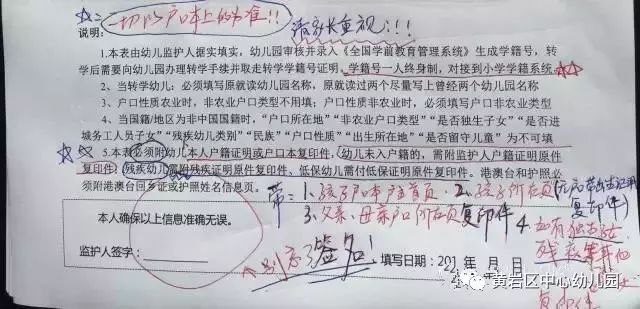 一切以户口本上的为准!!
请家长重视!!!
说明:
1.本表由幼儿监护人据实填实,幼儿园审核并录入《全国学前教育管理系统》生成学籍号,转
学后需要向幼儿园办理转学手续并取走转学学籍号证明。学籍号一人终身制,对接到小学学籍系统。
2、当转学幼儿:必须填写原就读幼儿园名称,原就读过两个尽量写上曾经两个幼儿园名称
3、户口性质农业时,非农业户口类型不用填;户口性质非农业时,必须填写户口非农业类型
4、当国籍/地区为非中国国籍时,“户口所在地”“非农业户口类型”“是否独生子女”“是否进
城务工人员子女”“残疾幼儿类别”“民族”“户口性质”“出生所在地”“是否留守儿童”为不可填
5.本表必须附幼儿本人户籍证明或户口本复印件,幼儿未入户籍的,需附监护人户籍证明原件
复印件;残疾幼儿需附残疾证明原件复印件、低保幼儿需付低保证明复印件。港澳台和护照必
须附港澳台回乡证或护照姓名信息页。
带:1、孩子户口本户主首页、2、孩子所在页
3、父亲、母亲户口所在页复印件
4、如有独生证
残疾等其他
复印件
本人确保以上信息准确无误。
监护人签字:
别忘了签名!
填写日期:201 年 月 日
黄岩区中心幼儿园